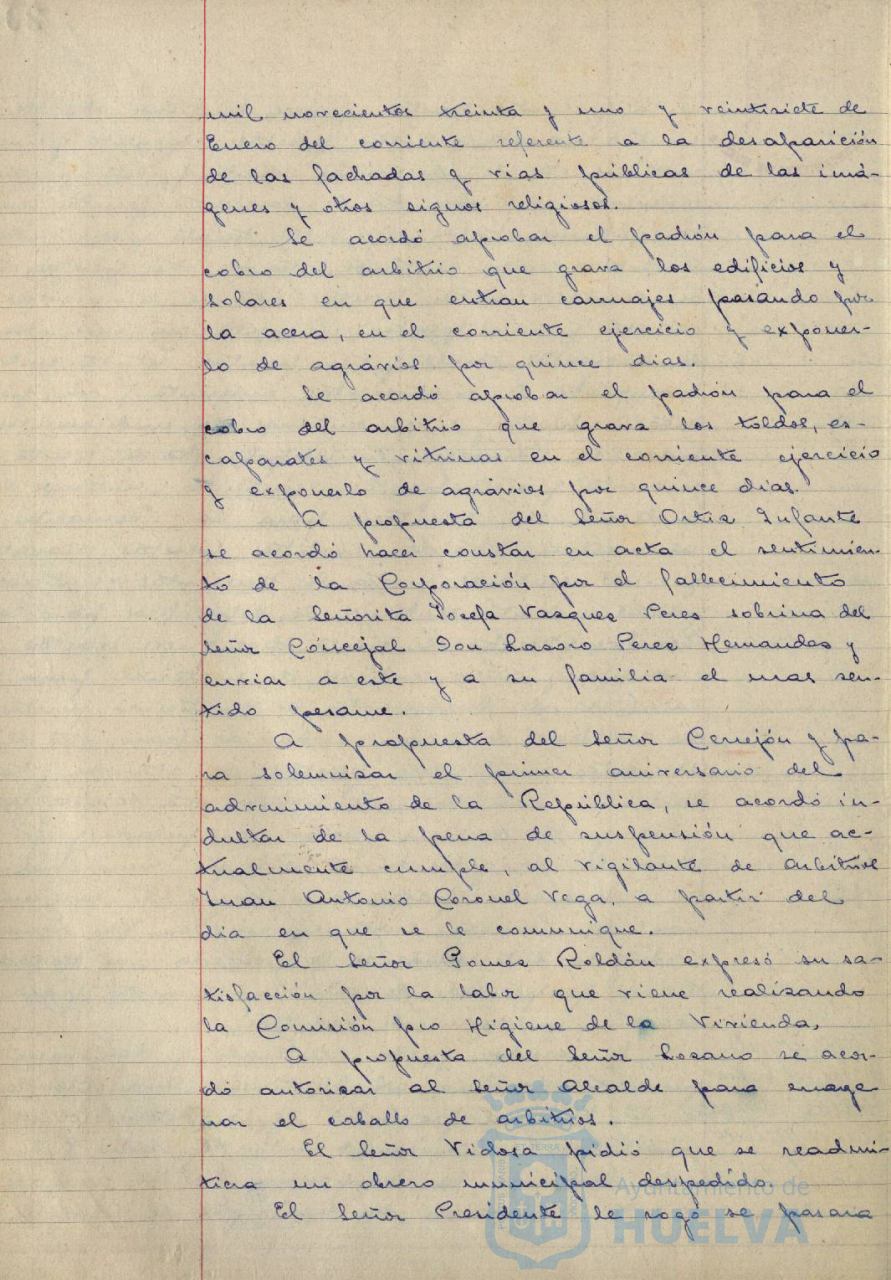 mil novecientos treinta y uno y veintisiete de
Enero del corriente referente a la desaparición
de las fachadas y vias públicas de las imá-
genes y otros signos religiosos.
Se acordó aprobar el padrón para el
cobro del arbitrio que grava los edificios y
solares en que entran carruajes pasando por
la acera, en el corriente ejercicio y exponer-
lo de agrávios por quince dias.
Se acordó aprobar el padrón para el
cobro del arbitrio que grava los toldos, es-
caparates y vitrinas en el corriente ejercicio
y exponerlo de agrávios por quince dias.
A propuesta del Señor Ortiz Infante
se acordó hacer constar en acta el sentimien-
to de la Corporación por el fallecimiento
de la Señorita Josefa Vazquez Perez sobrina del
Señor Concejal Don Lazaro Perez Hernandez y
enviar a este y a su familia el mas sen-
tido pesame.
A propuesta del Señor Cerrejón y pa-
ra solemnizar el primer aniversario del
advenimiento de la República, se acordó in-
dultar de la pena de suspensión que ac-
tualmente cumple, al vigilante de arbitrios
Juan Antonio Coronel Vega, a partir del
dia en que se le comunique.
El Señor Gomez Roldán expresó su sa-
tisfacción por la labor que viene realizando
la Comisión pro Higiene de la Vivienda.
A propuesta del Señor Lozano se acor-
dó autorizar al Señor Alcalde para enage
nar el caballo de arbitrios.
El Señor Vidosa pidió que se readmi-
tiera un obrero municipal despedido.
El Señor Presidente le rogó se pasara
Ayuntamiento de
HUELVA